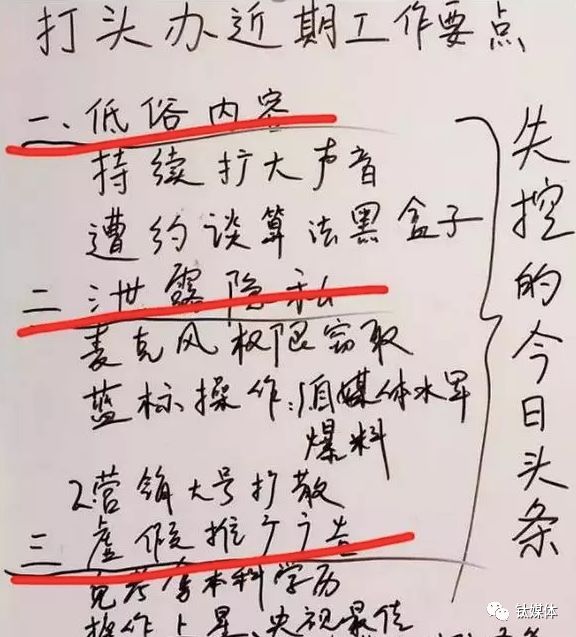 打头办近期工作要点
一、低俗内容
持续扩大声音
遭约谈算法黑盒子
二 泄露隐私
麦克风权限窃取
蓝标操作:1自媒体水军
爆料
2营销大号扩散
三 虚假推广广告
免考拿本科学历
操作上星、央视最佳
失控的今日头条
钛媒体